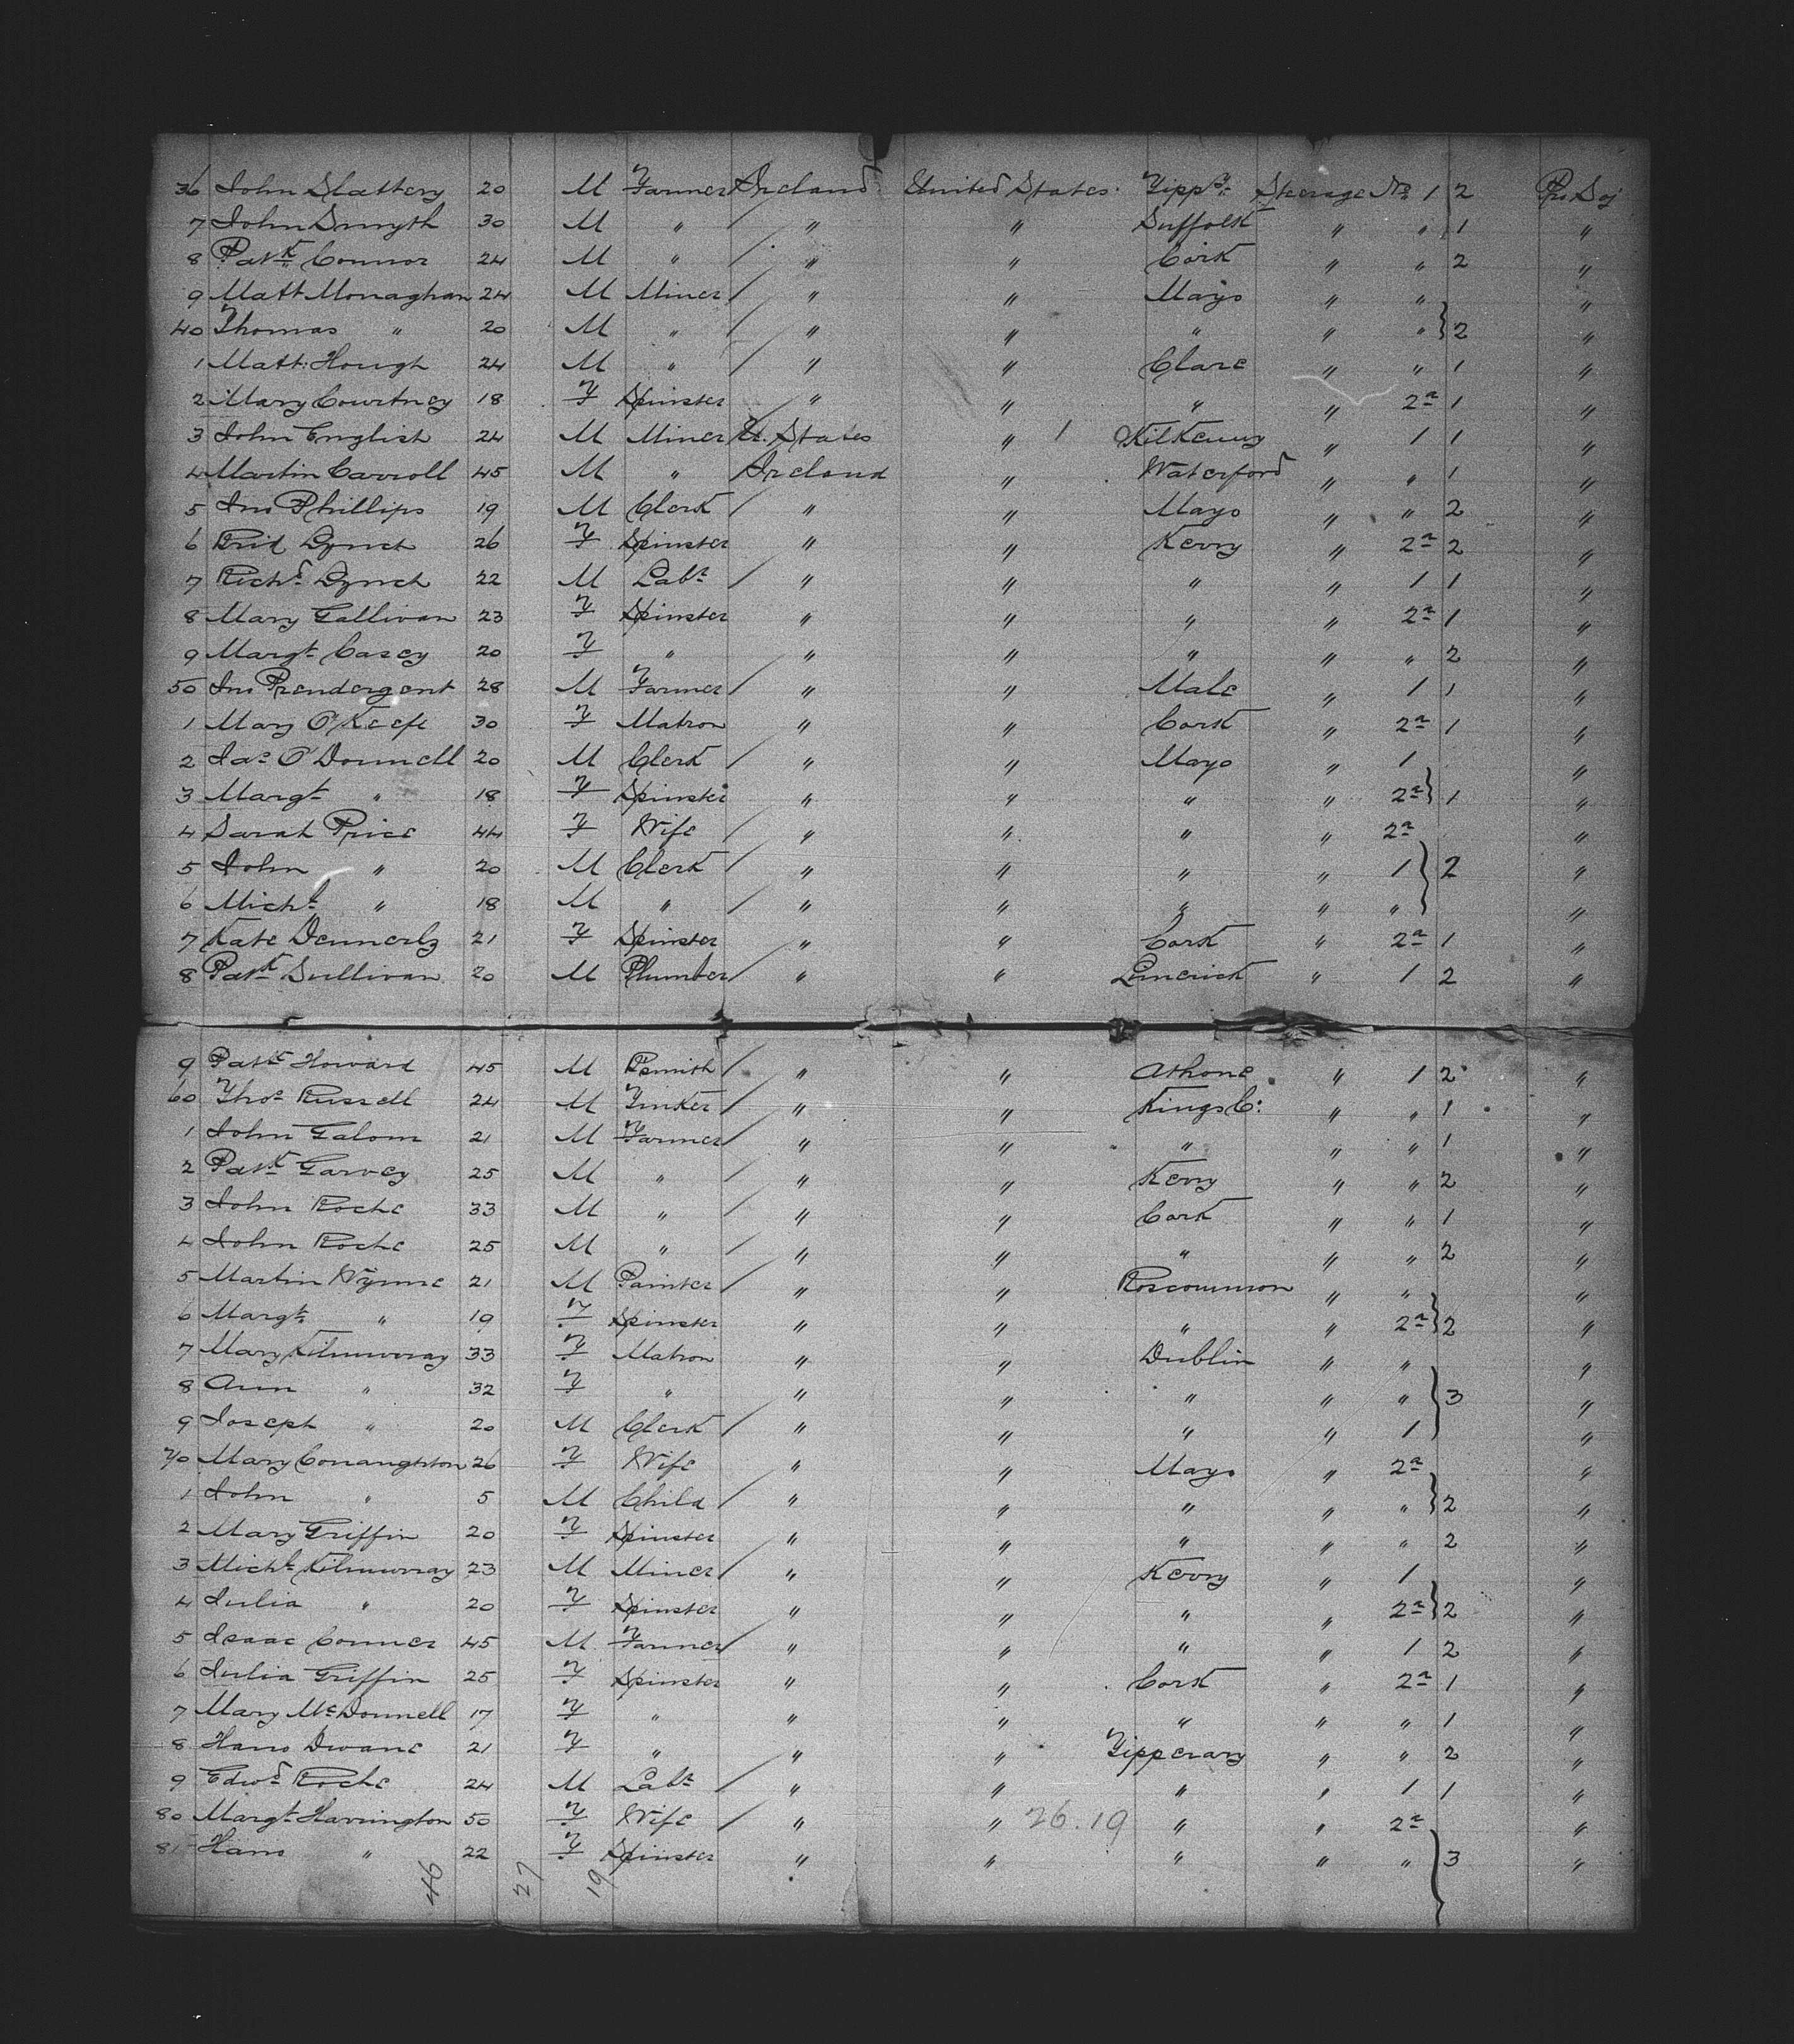 36 John Slattery 20 M Farmer Ireland United States Tippy Steerage No 1 2 Pr Soj
7 John Smyth 30 M " / " " Suffolk " " 1 "
8 Patk Connor 24 M " / " " Cork " " 2 "
9 Matt Monaghan 24 M Miner / " " Mayo " " "
40 Thomas " 20 M " / " " " " " } 2 "
1 Matt: Hough 24 M " / " " Clare " " 1 "
2 Mary Courtney 18 F Spinster " " " " 2a 1 "
3 John English 24 M Miner / U. States " 1 Kilkenny " 1 1 "
4 Martin Carroll 45 M " Ireland " Waterford " " 1 "
5 Jno Phillips 19 M Clerk / " " Mayo " " 2 "
6 Brid Lynch 26 F Spinster " " Kerry " 2a 2 "
7 Richd Lynch 22 M Labr / " " " " 1 1 "
8 Mary Gallivan 23 F Spinster " " " " 2a 1 "
9 Margt Casey 20 F " " " " " " 2 "
50 Jno Prendergent 28 M Farmer / " " Male " 1 1 "
1 Mary O'Keefe 30 F Matron " " Cork " 2a 1 "
2 Jas O'Donnell 20 M Clerk / " " Mayo " 1 "
3 Margt " 18 F Spinster " " " " 2a } 1 "
4 Sarah Price 44 F Wife / " " " " 2a "
5 John " 20 M Clerk / " " " " 1 } 2 "
6 Michl " 18 M " / " " " " " "
7 Kate 21 F Spinster " " Cork " 2a 1 "
8 Patk Sullivan 20 M Plumber / " " Limerick " 1 2 "
9 Patk Howard 45 M Bsmith / " " Athone " 1 2 "
60 Thos Russell 24 M Tinker / " " Kings Co: " " 1 "
1 John Galom 21 M Farmer / " " " " " 1 "
2 Patk Garvey 25 M " / " " Kerry " " 2 "
3 John Roche 33 M " / " " Cork " " 1 "
4 John Roche 25 M " / " " " " " 2 "
5 Martin Wynne 21 M Painter / " " Roscommon " " "
6 Margt " 19 F Spinster " " " " 2a } 2 "
7 Mary Kilmurray 33 F Matron " " Dublin " " "
8 Ann " 32 F " " " " " " } 3 "
9 Joseph " 20 M Clerk / " " " " 1 "
70 Mary Conaughton 26 F Wife " " Mayo " 2a "
1 John " 5 M Child / " " " " " } 2 "
2 Mary Griffin 20 F Spinster " " " " " 2 "
3 Michl Kilmurray 23 M Miner / " " Kerry " 1 "
4 Julia " 20 F Spinster " " " " 2a } 2 "
5 Isaac Conner 45 M Farmer / " " " " 1 2 "
6 Julia Griffin 25 F Spinster " " Cork " 2a 1 "
7 Mary McDonnell 17 F " " " " " " 1 "
8 Hano Dwane 21 F " " " Tipperary " " 2 "
9 Edwd Roche 24 M Labr / " " " " 1 1 "
80 Margt Harrington 50 F Wife / " " 26.19 " " 2a "
81 Hano " 22 F Spinster " " " " " } 3 "
46 27 19